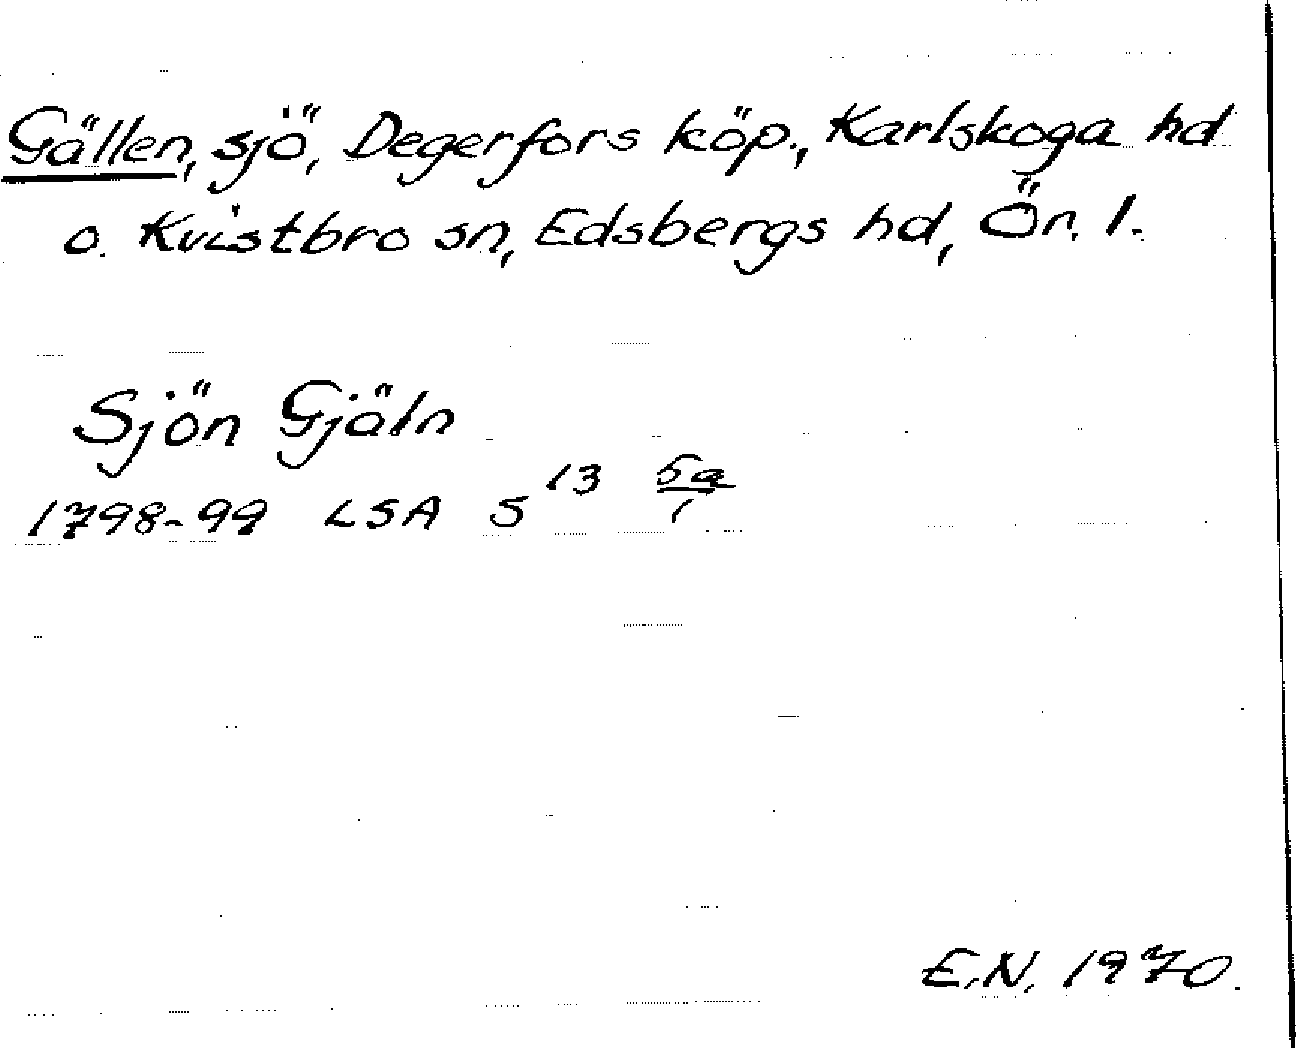 Gällen, sjö, Degerfors köp., Karlskoga hd
o. Kvistbro sn, Edsbergs hd, Ör. l.
Sjön Gjäln
1798-99 LSA S 13 5a/1
E.N. 1970.